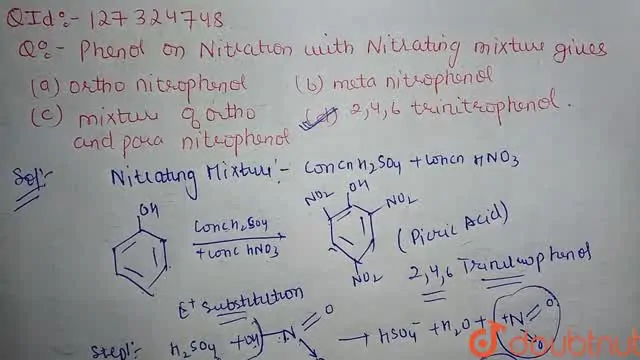 QId:- 127324748
Q:- Phenol on Nitration with Nitrating mixture gives
(a) ortho nitrophenol (b) meta nitrophenol
(c) mixture of ortho and para nitrophenol (d) 2,4,6 trinitrophenol.
Sol:- Nitrating Mixture:- Concn H2SO4 + Concn HNO3
OH
Conc H2SO4
+ Conc HNO3
OH
NO2 NO2
NO2
(Picric Acid)
2,4,6 Trinitrophenol
E+ Substitution
Step1:- H2SO4 + OH - N = O → HSO4- + H2O + +N = O
O
doubtnut